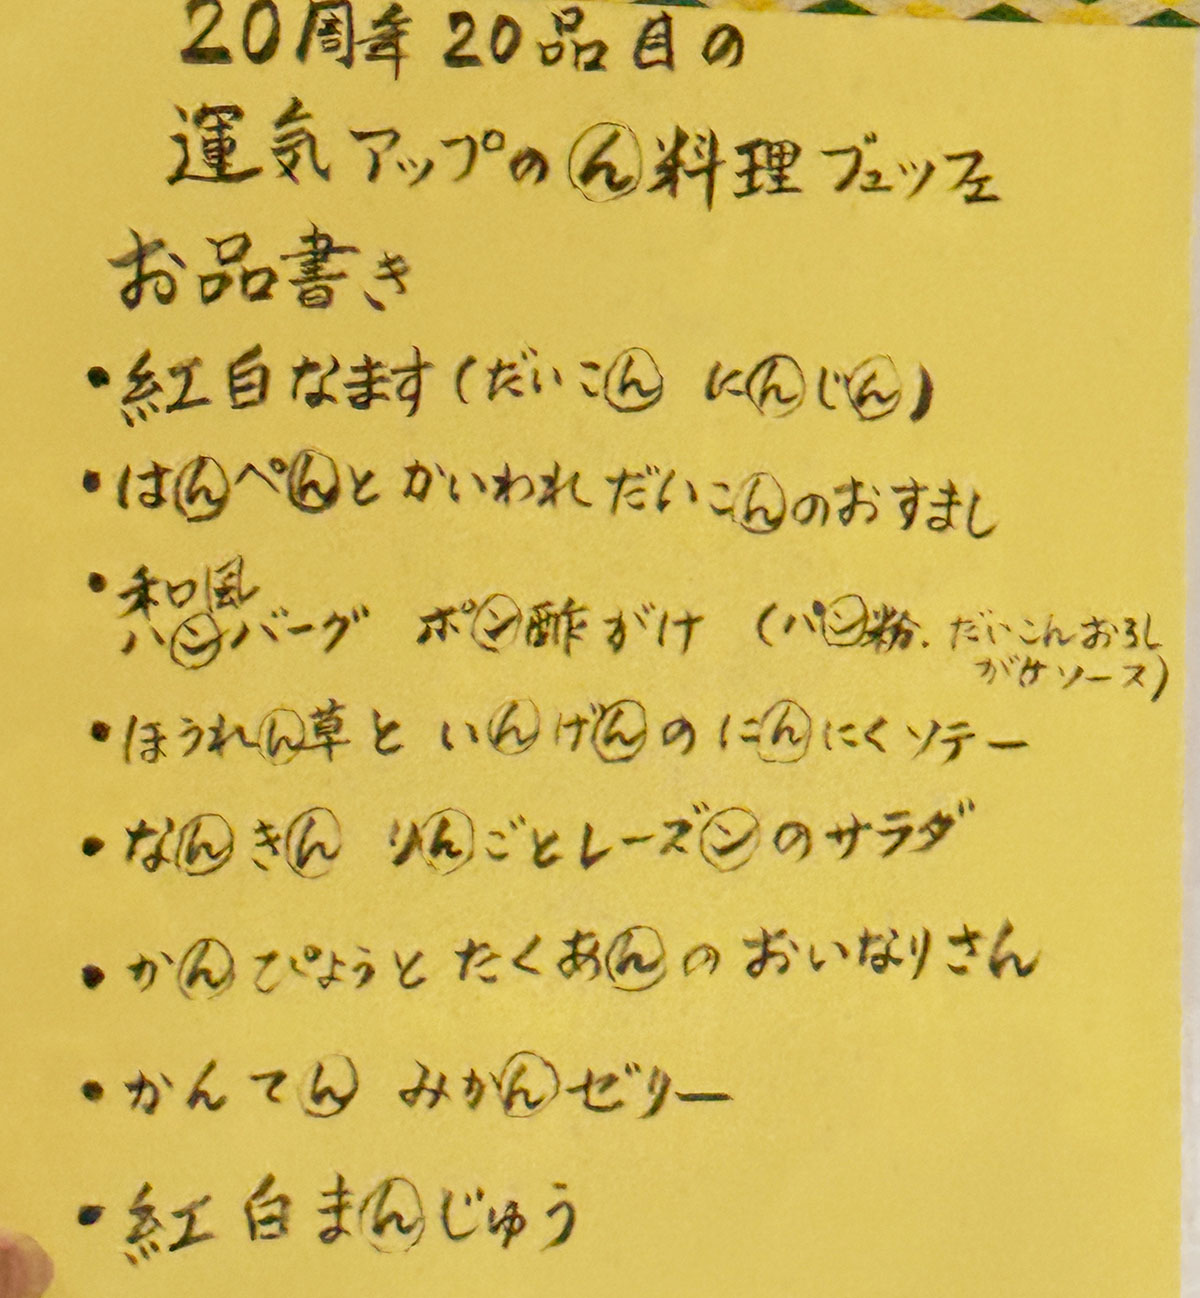 20周年 20品目の
運気アップのん料理ブュッフェ
お品書き
・紅白なます(だいこん にんじん)
・はんぺんとかいわれだいこんのおすまし
・和風
ハンバーグ ポン酢がけ (パン粉、だいこんおろし
がけソース)
・ほうれん草と いんげんの にんにくソテー
・なんきん りんごとレーズンのサラダ
・かんぴょうと たくあんの おいなりさん
・かんてん みかんゼリー
・紅白まんじゅう